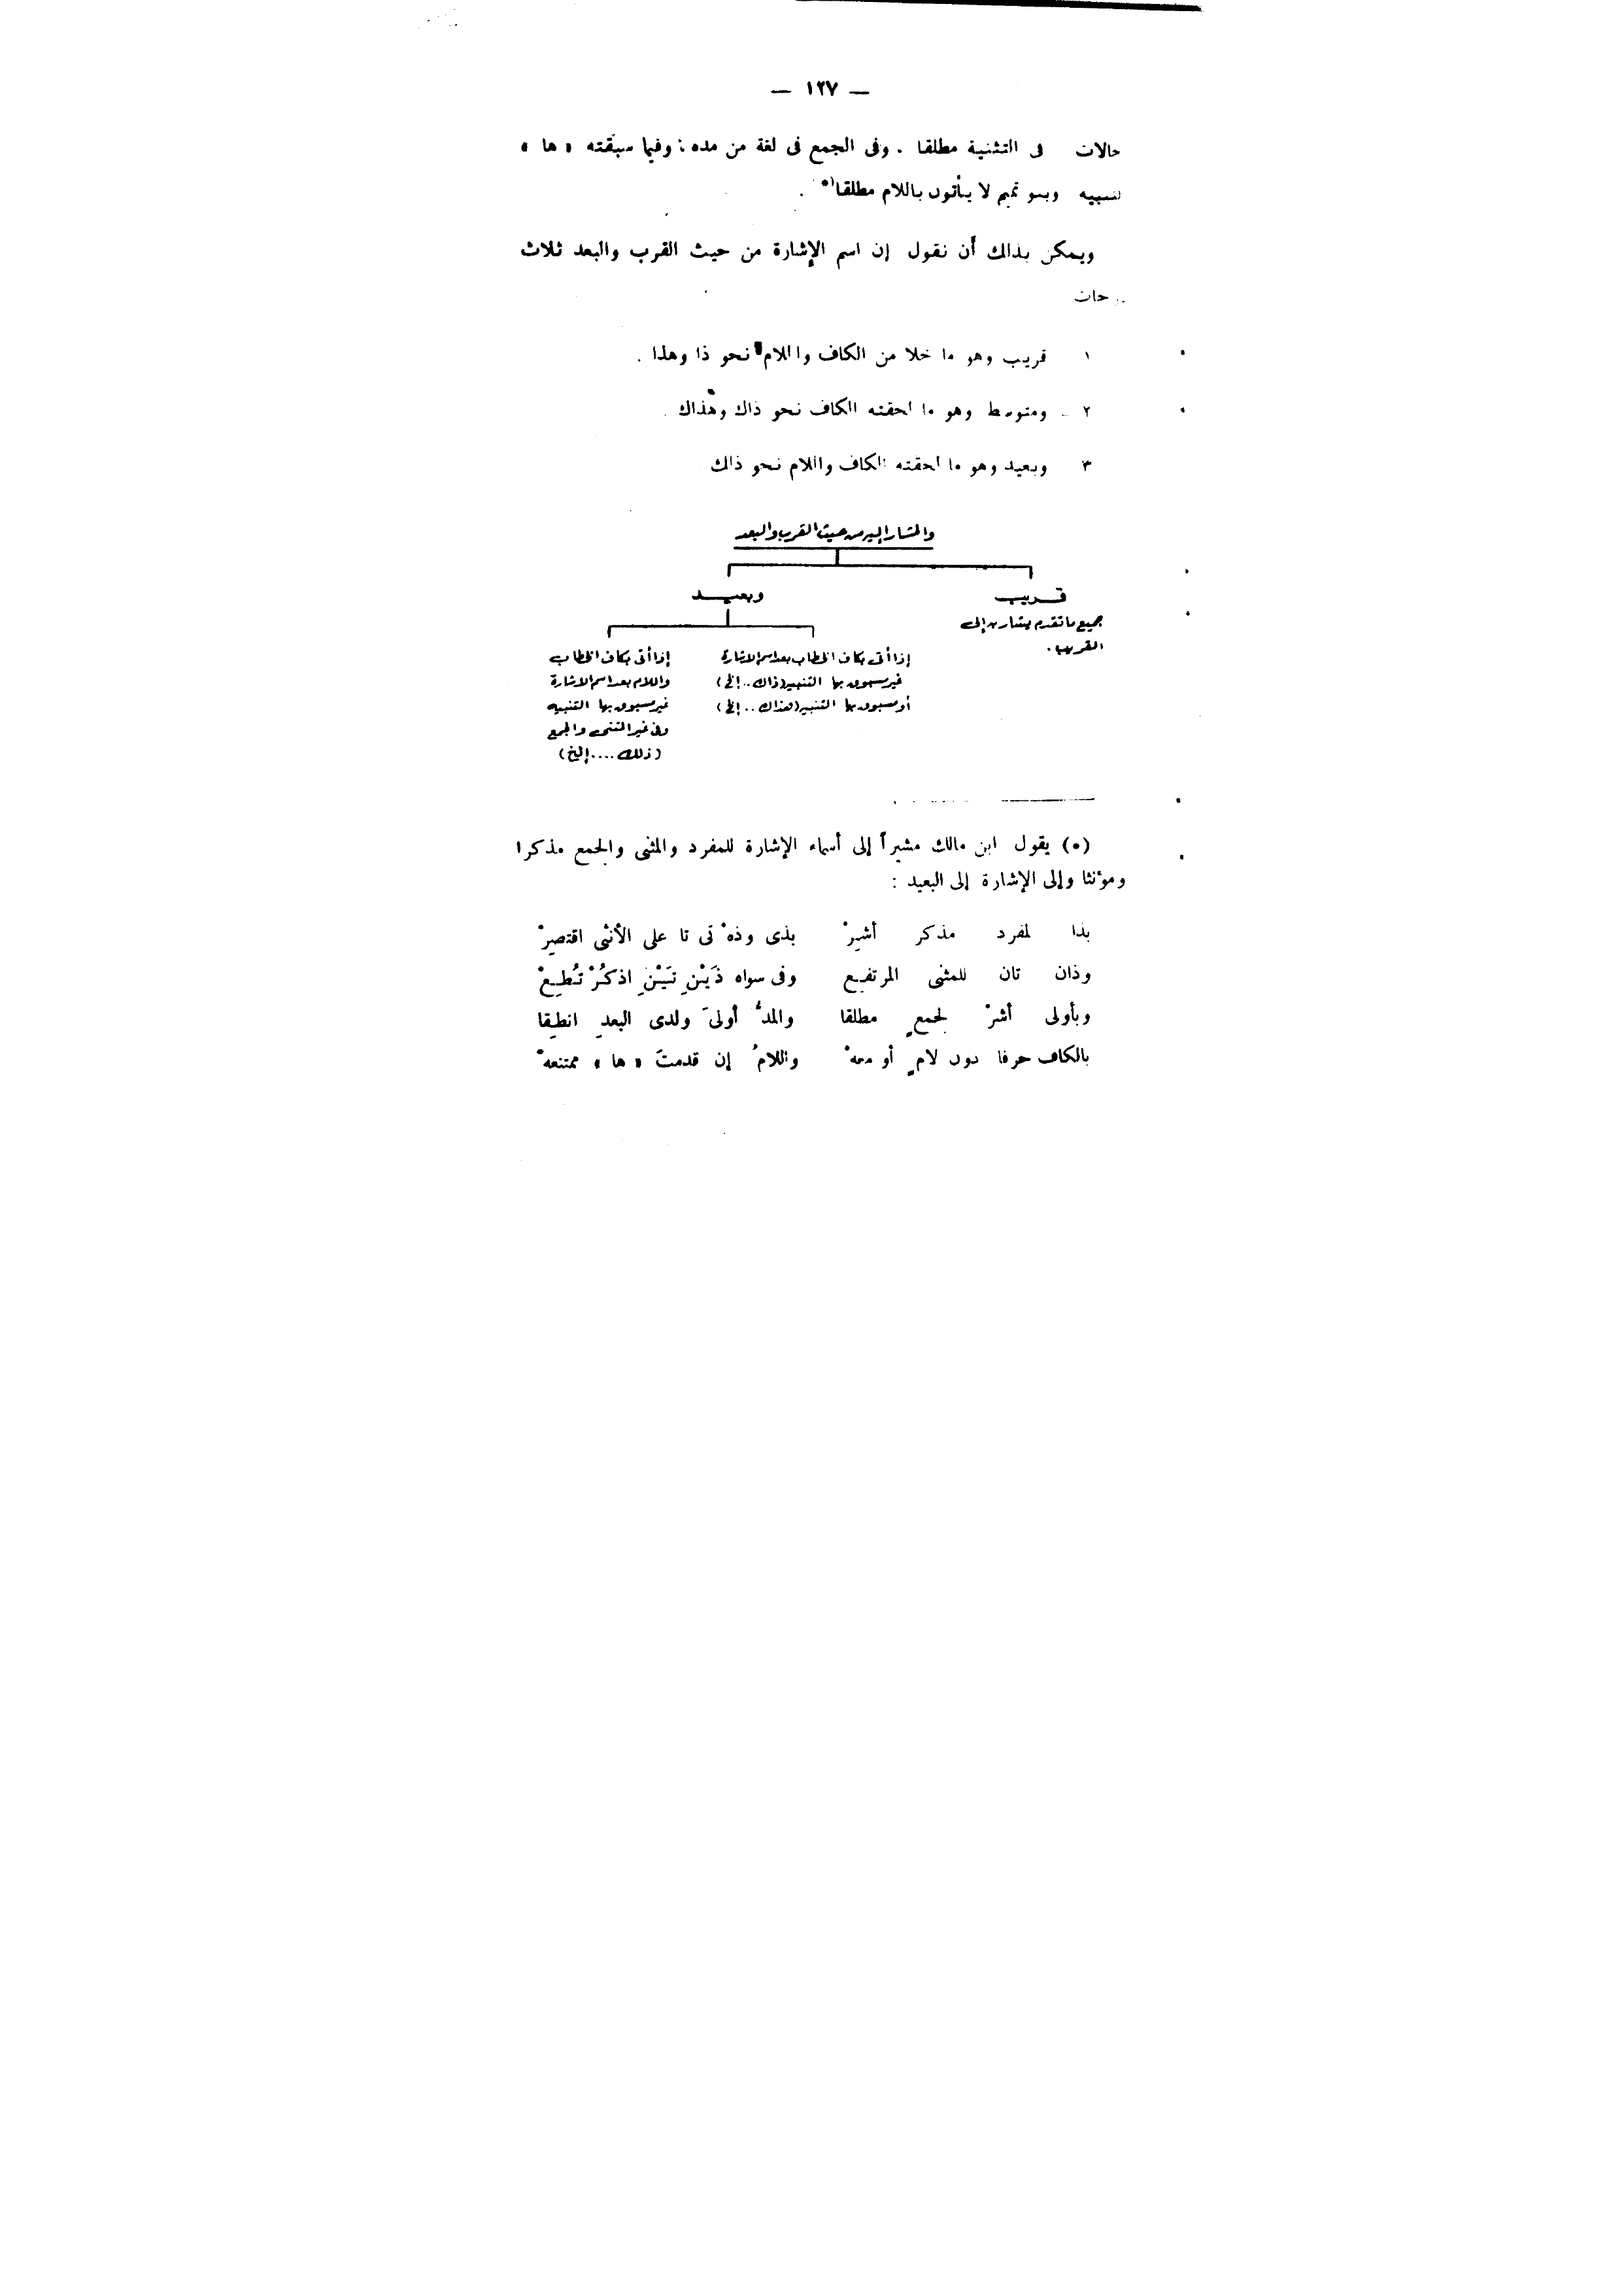 — ١٢٧ —
حالات فى التثنية مطلقا . وفى الجمع فى لغة من مده ; وفيما سبقته « ها »
للتنبيه وبنو تميم لا يأتون باللام مطلقا(٥) .
ويمكن بذلك أن نقول إن اسم الإشارة من حيث القرب والبعد ثلاث
درجات
١ قريب وهو ما خلا من الكاف واللام نحو ذا وهذا .
٢ – ومتوسط وهو ما لحقته الكاف نحو ذاك وهذاك .
٣ وبعيد وهو ما لحقته الكاف واللام نحو ذلك
والمشار إليه من حيث القرب والبعد
قريب
جميع ما تقدم يشار به إلى
القريب .
وبعيد
إذا أتى بكاف الخطاب بعد اسم الإشارة
غير مسبوق بها التنبيه (ذاك .. إلخ)
أو مسبوق بها التنبيه (هذاك .. إلخ)
إذا أتى بكاف الخطاب
واللام بعد اسم الإشارة
غير مسبوق بها التنبيه
وفى غير المثنى والجمع
(ذلك .... إلخ)
(٥) يقول ابن مالك مشيراً إلى أسماء الإشارة للمفرد والمثنى والجمع مذكرا
ومؤنثا وإلى الإشارة إلى البعيد :
بذا لمفرد مذكر أشِرْ بذى وذهْ تى تا على الأنثى اقتصِرْ
وذان تان للمثنى المرتفع وفى سواه ذَيْنِ تَيْنِ اذكُرْ تُطِعْ
وبأولى أشرْ لجمعٍ مطلقا والمدُّ أولىَ ولدى البعدِ انطِقا
بالكاف حرفا دون لامٍ أو معهْ واللامُ إن قدمتَ « ها » ممتنعهْ